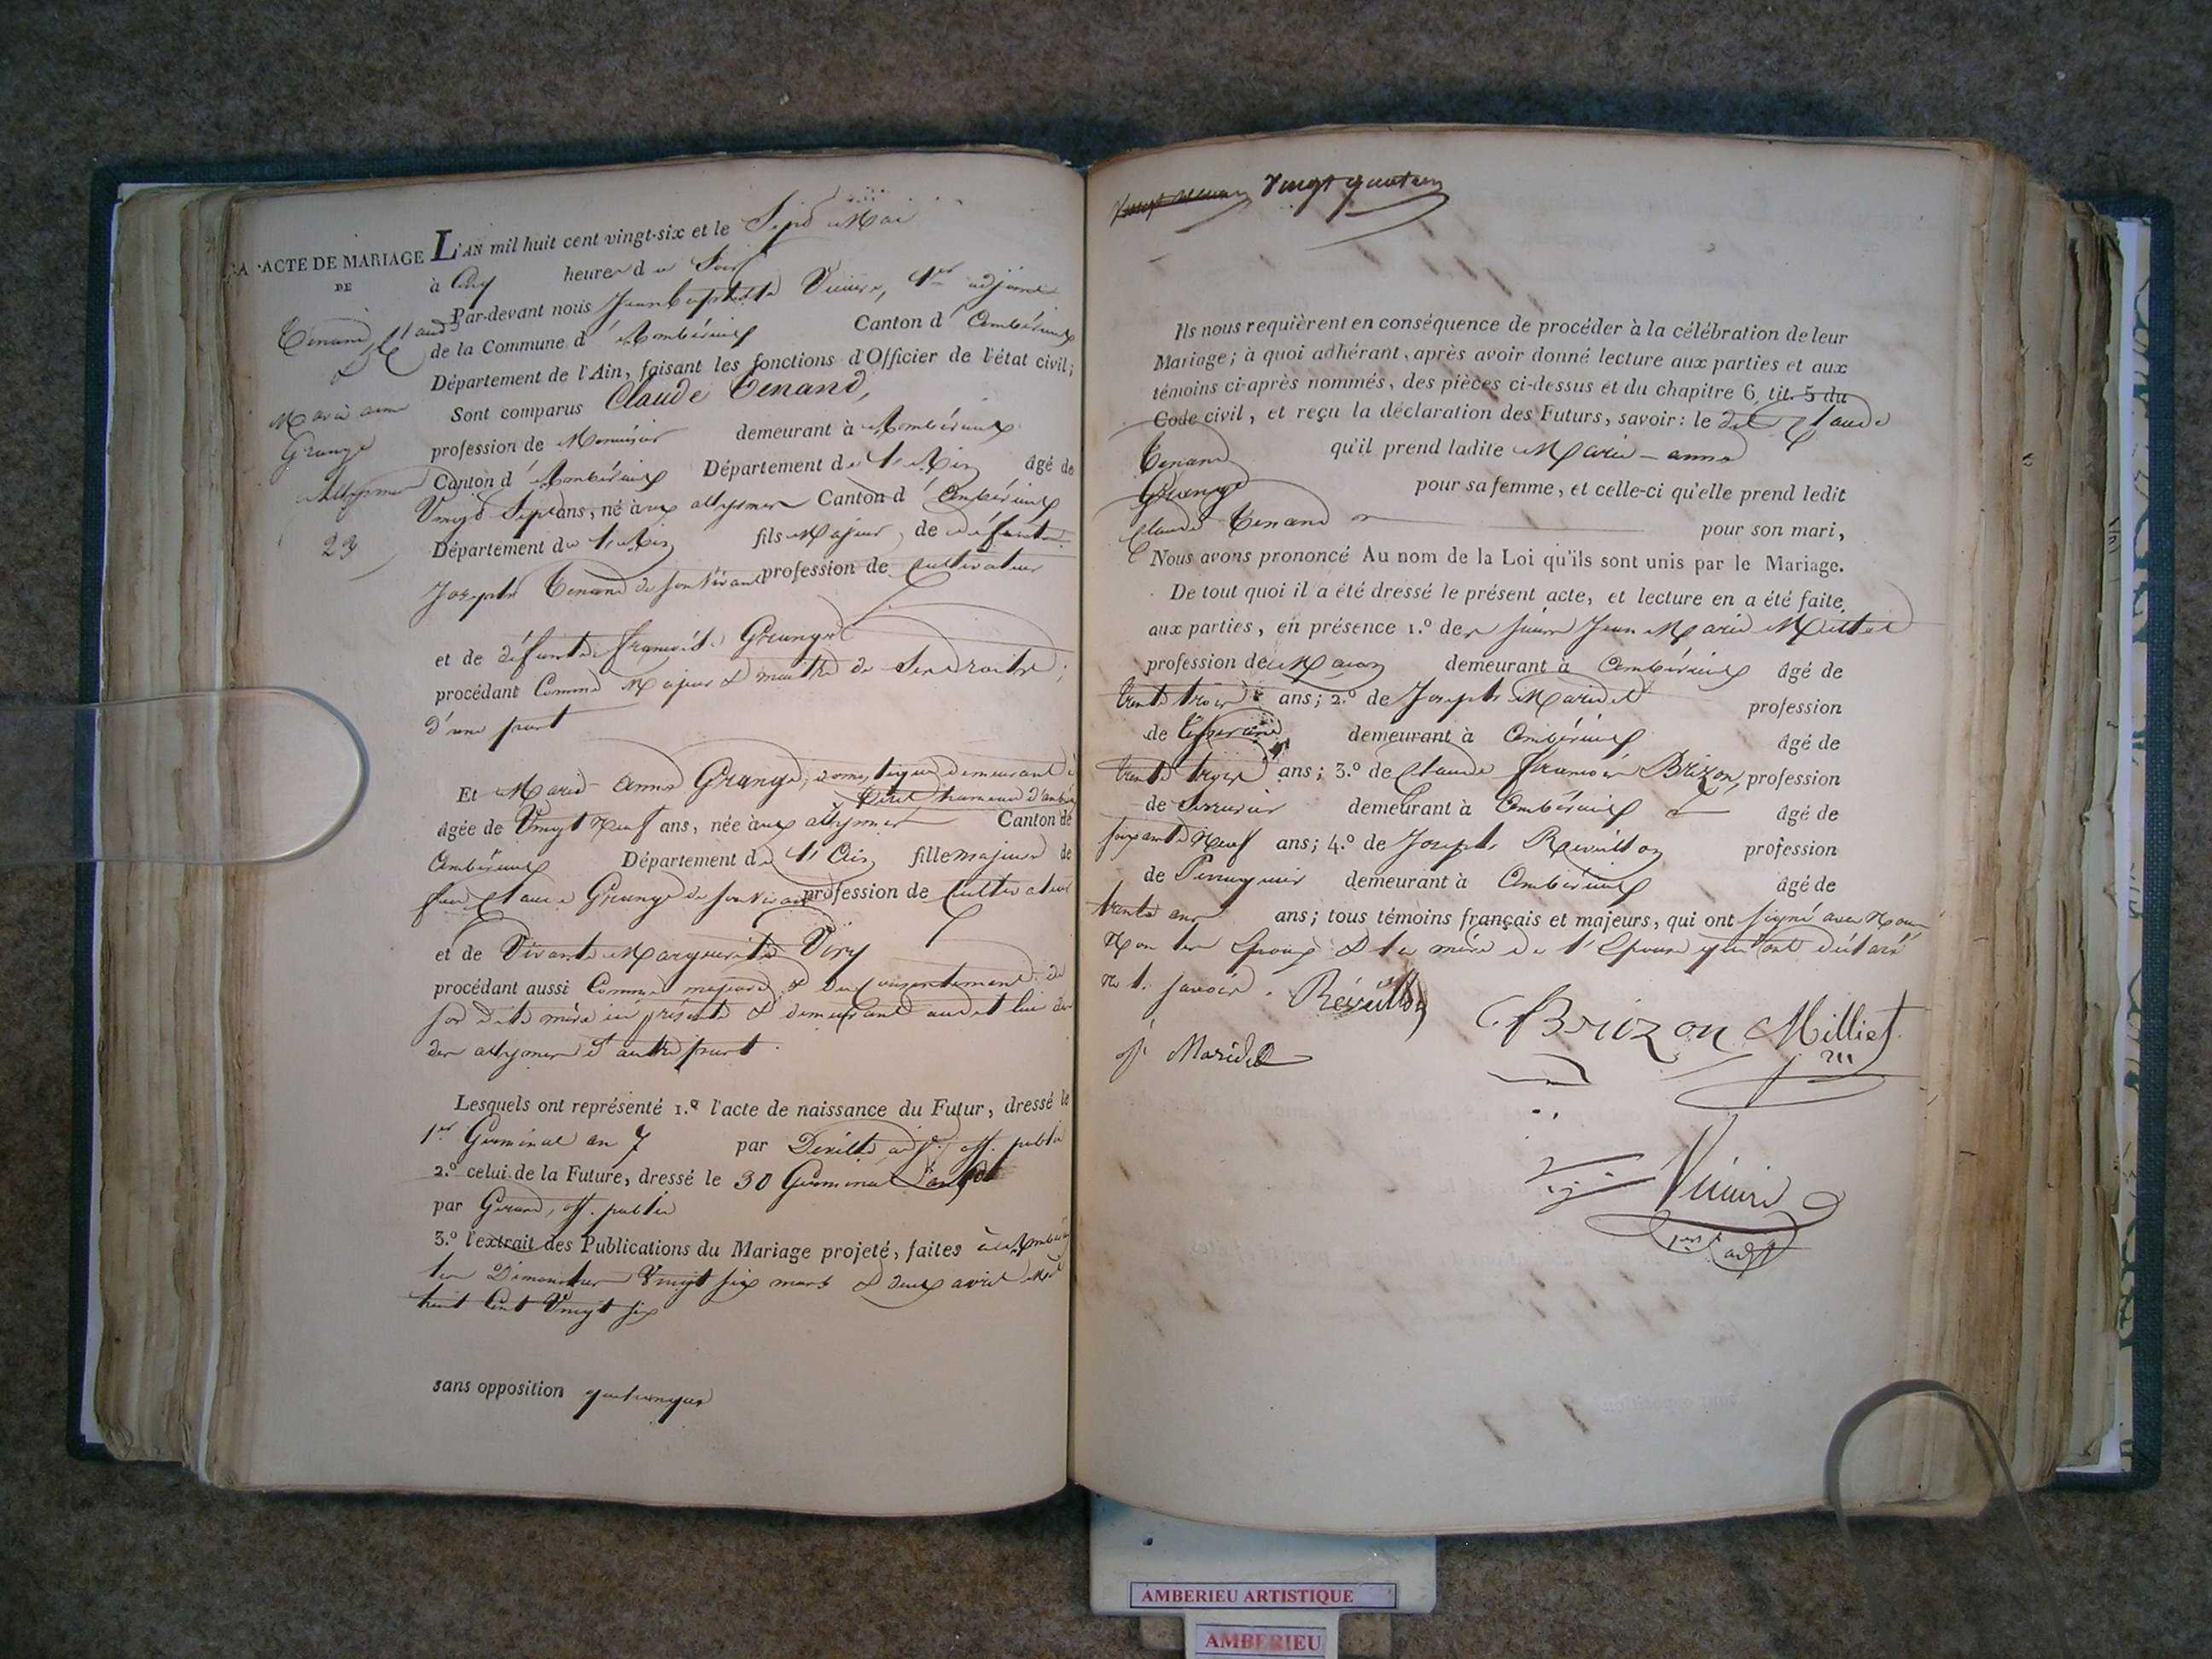 ACTE DE MARIAGE
DE
Tenand Claude
&
Marie anne
Grange
Allymes
23
L'AN mil huit cent vingt-six et le Sept Mai
à Cinq heures du Soir
Par-devant nous Jean baptiste Vicaire, 1er adjoint
de la Commune d'Ambérieux Canton d'Ambérieux
Département de l'Ain, faisant les fonctions d'Officier de l'état civil;
Sont comparus Claude Tenand,
profession de Menuisier demeurant à Ambérieux
Canton d'Ambérieux Département de l'Ain âgé de
Vingt Sept ans, né aux allymes Canton d'Ambérieux
Département de l'Ain fils Majeur de défunt
Joseph Tenand de son Vivant profession de Cultivateur
et de défunte Grange
procédant Comme Majeur & maitre de Ses Droits,
d'une part
Et Marie-Anne Grange, domestique demeurant à
Tiret hameau d'ambérieux
âgée de Vingt Neuf ans, née aux allymes Canton de
Ambérieux Département de l'Ain fille majeure de
feu Claude Grange de son Vivant profession de Cultivateur
et de Vivante Marguerite Viry
procédant aussi Comme majeure & du Consentement de
sa dite mère ici présente & demeurant audit lieu des
des allymes d'autre part.
Lesquels ont représenté 1.º l'acte de naissance du Futur, dressé le
1er Germinal an 7 par off. public
2.º celui de la Future, dressé le 30 Germinal
par Girard, off. public
3.º l'extrait des Publications du Mariage projeté, faites à Ambérieux
les Dimanches Vingt six mars & deux avril Mil
huit Cent Vingt six
sans opposition quelconque
Vingt quatre
Ils nous requièrent en conséquence de procéder à la célébration de leur
Mariage; à quoi adhérant, après avoir donné lecture aux parties et aux
témoins ci-après nommés, des pièces ci-dessus et du chapitre 6, tit. 5 du
Code civil, et reçu la déclaration des Futurs, savoir: le dit Claude
Tenand qu'il prend ladite Marie-anne
Grange pour sa femme, et celle-ci qu'elle prend ledit
Claude Tenand pour son mari,
Nous avons prononcé Au nom de la Loi qu'ils sont unis par le Mariage.
De tout quoi il a été dressé le présent acte, et lecture en a été faite
aux parties, en présence 1.º de Jean Marie Milliet
profession de Maçon demeurant à Ambérieux âgé de
trente trois ans; 2.º de Joseph Maridet profession
de Tisserand demeurant à Ambérieux âgé de
trente trois ans; 3.º de Claude François Brizon, profession
de Serrurier demeurant à Ambérieux âgé de
soixante Neuf ans; 4.º de Joseph Reveillon profession
de Perruquier demeurant à Ambérieux âgé de
trente ans; tous témoins français et majeurs, qui ont signé avec Nous
Non les Epoux & la mère de l'Epouse qui ont déclaré
ne le savoir.
Réveillon C. f Brizon Milliet
jm
Maridet
Vicaire
1er adjt
AMBERIEU ARTISTIQUE
AMBERIEU